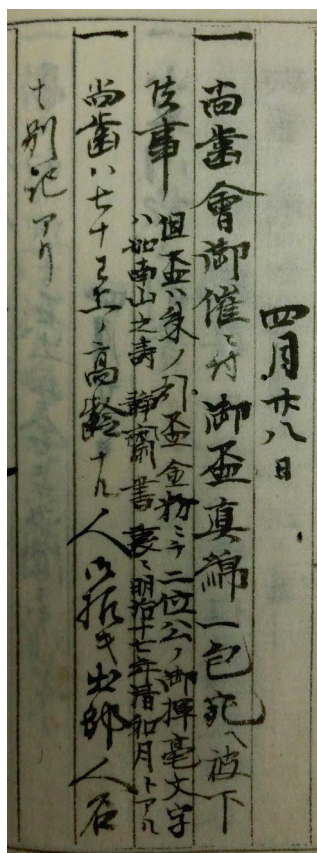 四月廿八日
一 尚歯會御催ニ付御盃真綿一包宛被下
候事 但盃ハ朱ノ引盃金粉ニテ二位公ノ御揮毫文字
ハ如南山之壽 静齋書 裏ニ明治十七年清和月トアル
一 尚歯ハ七十以上ノ高齢ナル人御招キ出師人名
ナ別記アリ